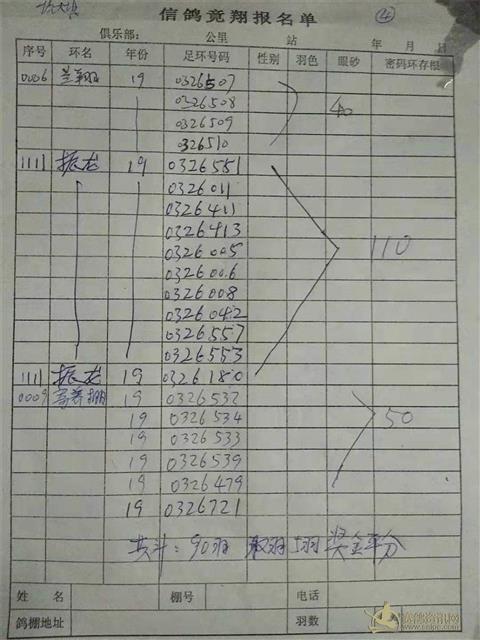 ④
信鸽竞翔报名单
俱乐部： 公里 站 年 月 日
序号 环名 年份 足环号码 性别 羽色 眼砂 密码环存根
0006 兰翔 19 0326507
0326508
40
0326509
0326510
1111 振龙 19 0326551
0326011
0326411
0326413
110
0326005
0326006
0326008
0326042
0326557
0326553
1111 振龙 19 0326180
0009 19 0326532
19 0326534
50
19 0326533
19 0326539
19 0326479
19 0326721
共计：90羽 取羽 5羽 奖金平分
姓名 棚号 电话
鸽棚地址 羽数